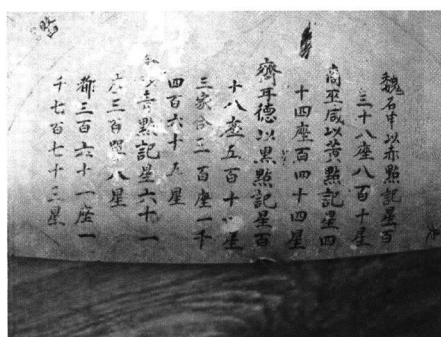 魏石申以赤點記星百
三十八座八百十星
商巫咸以黃點記星四
十四座百四十四星
齊耳德以黒點記星百
十八座五百十一星
三家合三百座一千
四百六十五星
青點記星六十一
座三百八星
都三百六十一座一
千七百七十三星